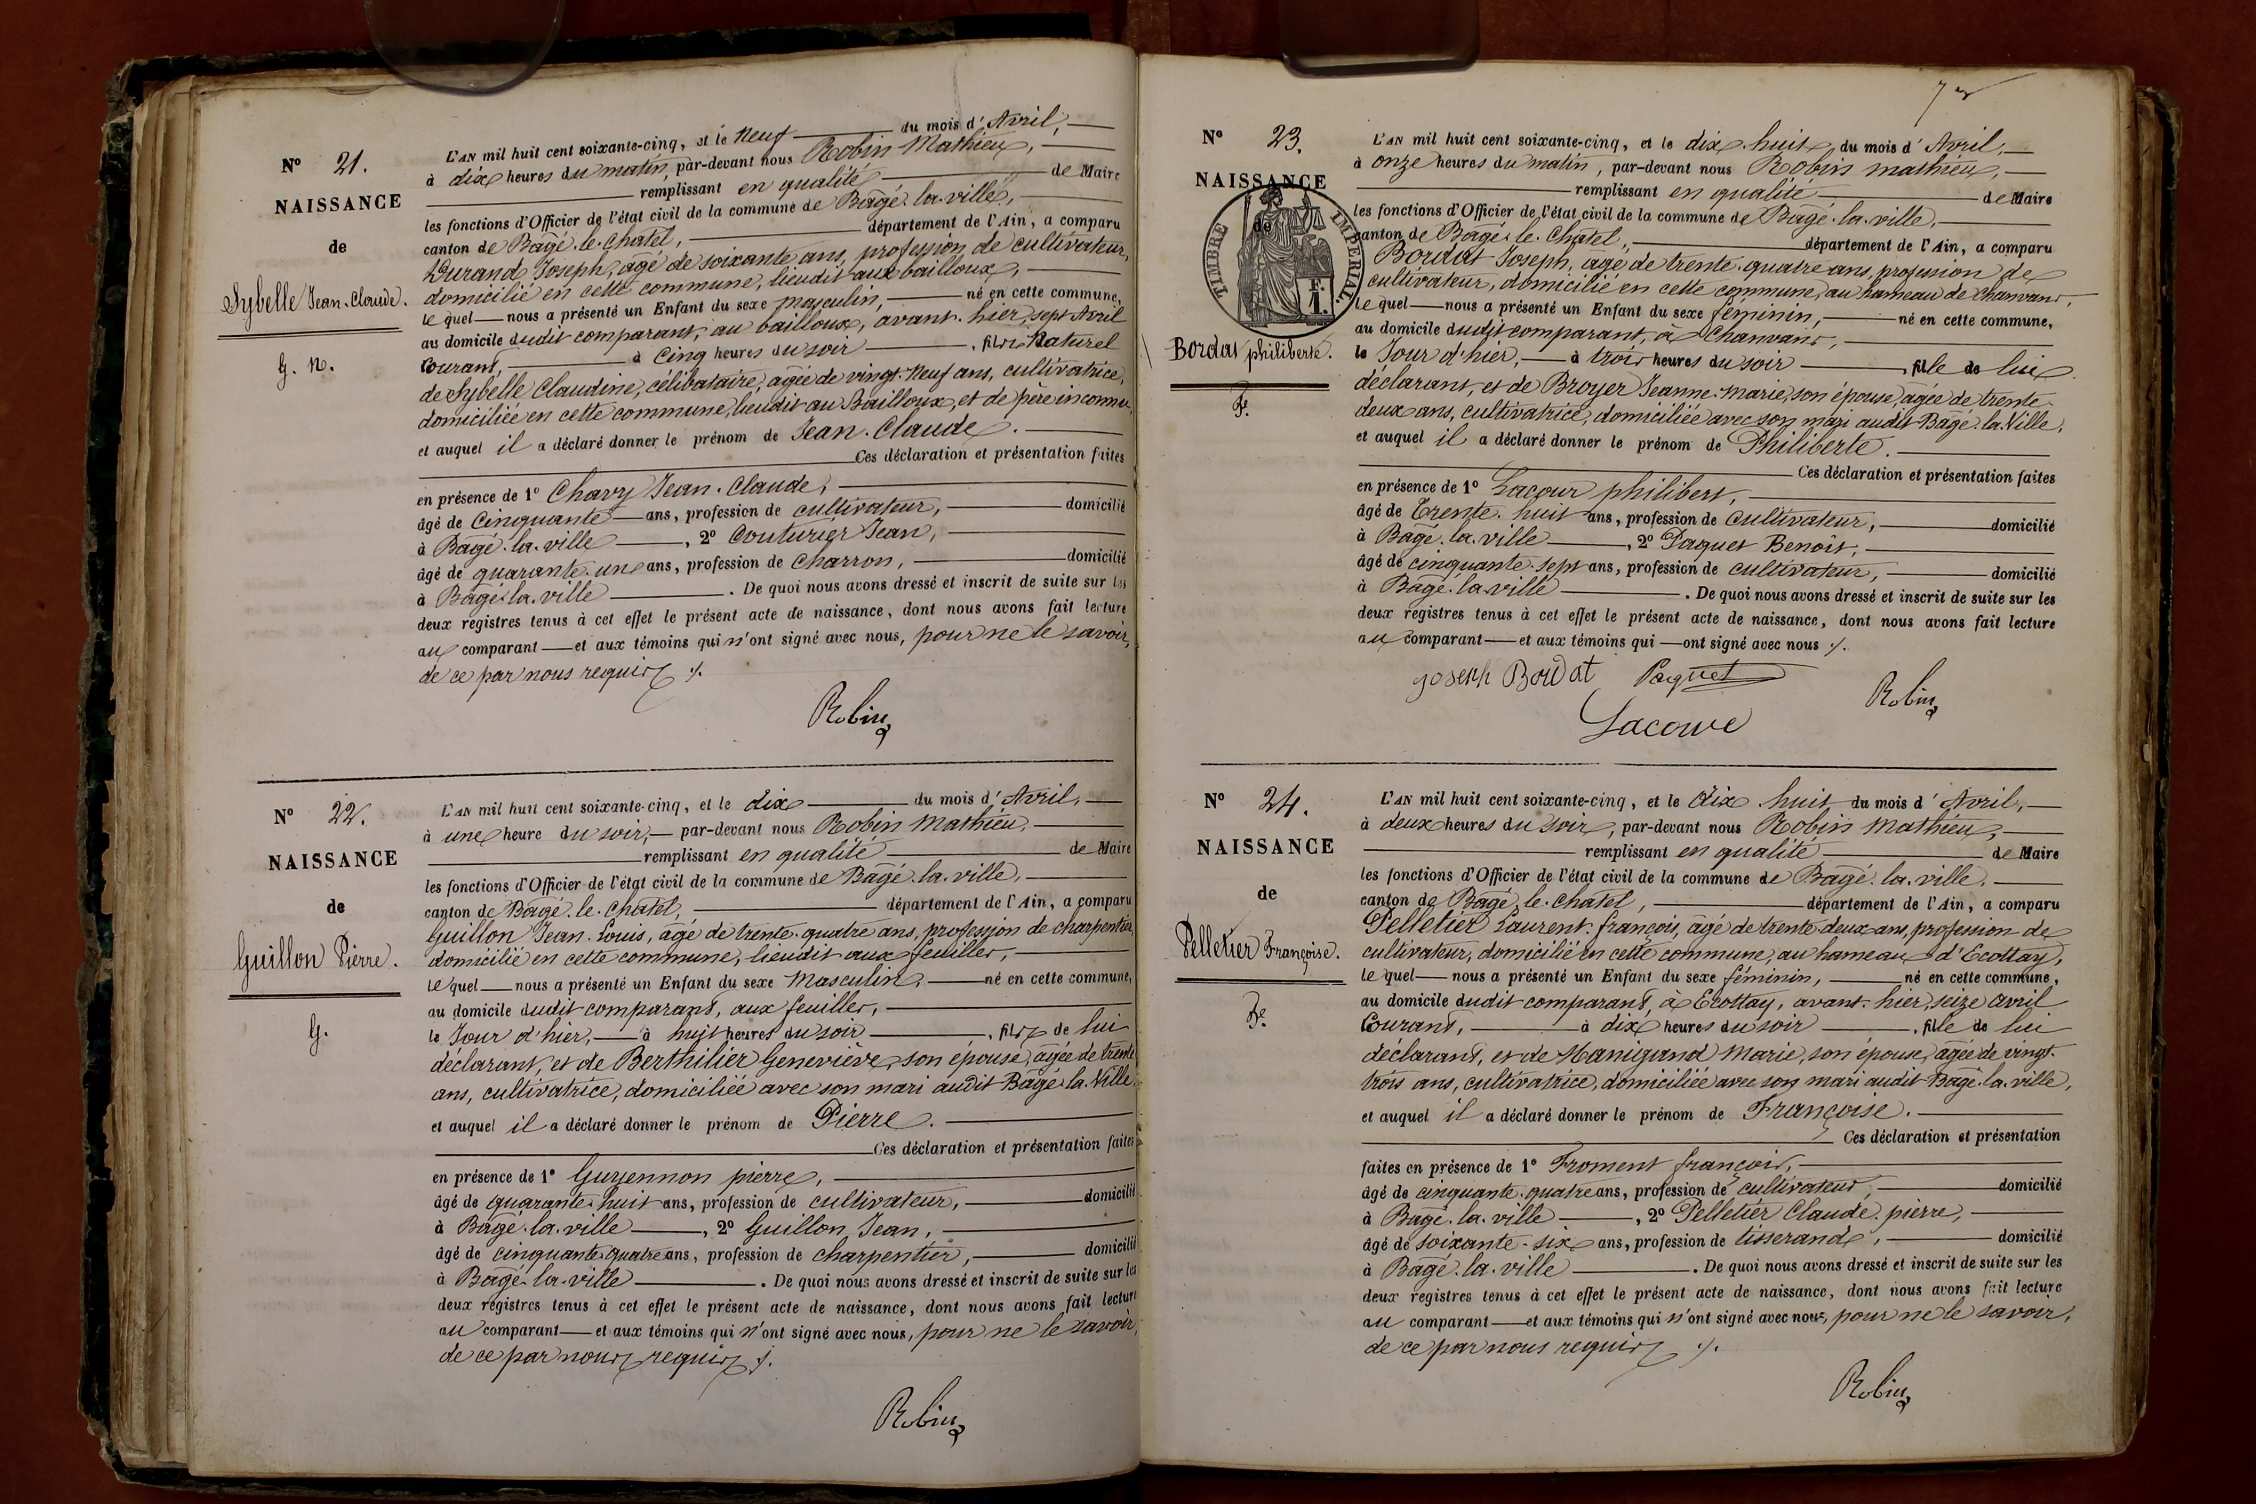 N° 21.
NAISSANCE
de
Sybelle Jean-Claude.
G. N.
L'AN mil huit cent soixante-cinq, et le Neuf du mois d'Avril,
à dix heures du matin, par-devant nous Robin Mathieu,
remplissant en qualité de Maire
les fonctions d'Officier de l'état civil de la commune de Bagé-la-ville,
canton de Bagé-le-Chatel, département de l'Ain, a comparu
Durand Joseph, âgé de soixante ans, profession de cultivateur,
domicilié en cette commune, lieudit aux bailloux,
le quel nous a présenté un Enfant du sexe masculin, né en cette commune,
au domicile dudit comparant, au bailloux, avant-hier, sept Avril
Courant, à Cinq heures du soir, fils Naturel
de Sybelle Claudine, célibataire, âgée de vingt-Neuf ans, cultivatrice,
domiciliée en cette commune, lieudit au Bailloux, et de père inconnu.
et auquel il a déclaré donner le prénom de Jean-Claude.
Ces déclaration et présentation faites
en présence de 1° Chavy Jean-Claude,
âgé de Cinquante ans, profession de cultivateur, domicilié
à Bagé-la-ville, 2° Couturier Jean,
âgé de quarante-un ans, profession de Charron, domicilié
à Bagé-la-ville. De quoi nous avons dressé et inscrit de suite sur les
deux registres tenus à cet effet le présent acte de naissance, dont nous avons fait lecture
au comparant et aux témoins qui n'ont signé avec nous, pour ne le savoir,
de ce par nous requis ./.
Robin
N° 22.
NAISSANCE
de
Guillon Pierre.
G.
L'AN mil huit cent soixante-cinq, et le dix du mois d'Avril,
à une heure du soir, par-devant nous Robin Mathieu,
remplissant en qualité de Maire
les fonctions d'Officier de l'état civil de la commune de Bagé-la-ville,
canton de Bagé-le-Chatel, département de l'Ain, a comparu
Guillon Jean-Louis, âgé de trente-quatre ans, profession de charpentier,
domicilié en cette commune, lieudit aux feuilles,
le quel nous a présenté un Enfant du sexe Masculin, né en cette commune,
au domicile dudit comparant, aux feuilles,
le Jour d'hier, à huit heures du soir, fils de lui
déclarant, et de Berthilier Geneviève, son épouse, âgée de trente
ans, cultivatrice, domiciliée avec son mari audit Bagé-la-Ville
et auquel il a déclaré donner le prénom de Pierre.
Ces déclaration et présentation faites
en présence de 1° Guyennon pierre,
âgé de quarante-huit ans, profession de cultivateur, domicilié
à Bagé-la-ville, 2° Guillon Jean,
âgé de cinquante-quatre ans, profession de charpentier, domicilié
à Bagé-la-ville. De quoi nous avons dressé et inscrit de suite sur les
deux registres tenus à cet effet le présent acte de naissance, dont nous avons fait lecture
au comparant et aux témoins qui n'ont signé avec nous, pour ne le savoir,
de ce par nous requis ./.
Robin
N° 23.
NAISSANCE
de
TIMBRE IMPERIAL.
1 F.
Bordat philiberte.
Fe.
L'AN mil huit cent soixante-cinq, et le dix-huit du mois d'Avril,
à onze heures du matin, par-devant nous Robin mathieu,
remplissant en qualité de Maire
les fonctions d'Officier de l'état civil de la commune de Bagé-la-ville,
canton de Bagé-le-Chatel, département de l'Ain, a comparu
Bordat Joseph, âgé de trente-quatre ans, profession de
cultivateur, domicilié en cette commune, au hameau de Chanvans,
le quel nous a présenté un Enfant du sexe féminin, né en cette commune,
au domicile dudit comparant, à Chanvans,
le Jour d'hier, à trois heures du soir, fille de lui
déclarant, et de Broyer Jeanne-Marie, son épouse, âgée de trente-
deux ans, cultivatrice, domiciliée avec son mari audit Bagé-la-Ville,
et auquel il a déclaré donner le prénom de Philiberte.
Ces déclaration et présentation faites
en présence de 1° Lacour philibert,
âgé de Trente-huit ans, profession de cultivateur, domicilié
à Bagé-la-ville, 2° Paquet Benoît,
âgé de cinquante-sept ans, profession de cultivateur, domicilié
à Bagé-la-ville. De quoi nous avons dressé et inscrit de suite sur les
deux registres tenus à cet effet le présent acte de naissance, dont nous avons fait lecture
au comparant et aux témoins qui ont signé avec nous ./.
joseph Bordat Paquet Robin
Lacour
N° 24.
NAISSANCE
de
Pelletier Françoise.
Fe.
L'AN mil huit cent soixante-cinq, et le dix-huit du mois d'Avril,
à deux heures du soir, par-devant nous Robin Mathieu,
remplissant en qualité de Maire
les fonctions d'Officier de l'état civil de la commune de Bagé-la-ville,
canton de Bagé-le-Chatel, département de l'Ain, a comparu
Pelletier Laurent-françois, âgé de trente-deux ans, profession de
cultivateur, domicilié en cette commune, au hameau d'Ecottay,
le quel nous a présenté un Enfant du sexe féminin, né en cette commune,
au domicile dudit comparant, à Ecottay, avant-hier, seize avril
Courant, à dix heures du soir, fille de lui
déclarant, et de Manigand Marie, son épouse, âgée de vingt-
trois ans, cultivatrice, domiciliée avec son mari audit Bagé-la-ville,
et auquel il a déclaré donner le prénom de Françoise.
Ces déclaration et présentation
faites en présence de 1° Froment françois,
âgé de cinquante-quatre ans, profession de cultivateur, domicilié
à Bagé-la-ville, 2° Pelletier Claude-pierre,
âgé de soixante-six ans, profession de tisserand, domicilié
à Bagé-la-ville. De quoi nous avons dressé et inscrit de suite sur les
deux registres tenus à cet effet le présent acte de naissance, dont nous avons fait lecture
au comparant et aux témoins qui n'ont signé avec nous, pour ne le savoir,
de ce par nous requis ./.
Robin